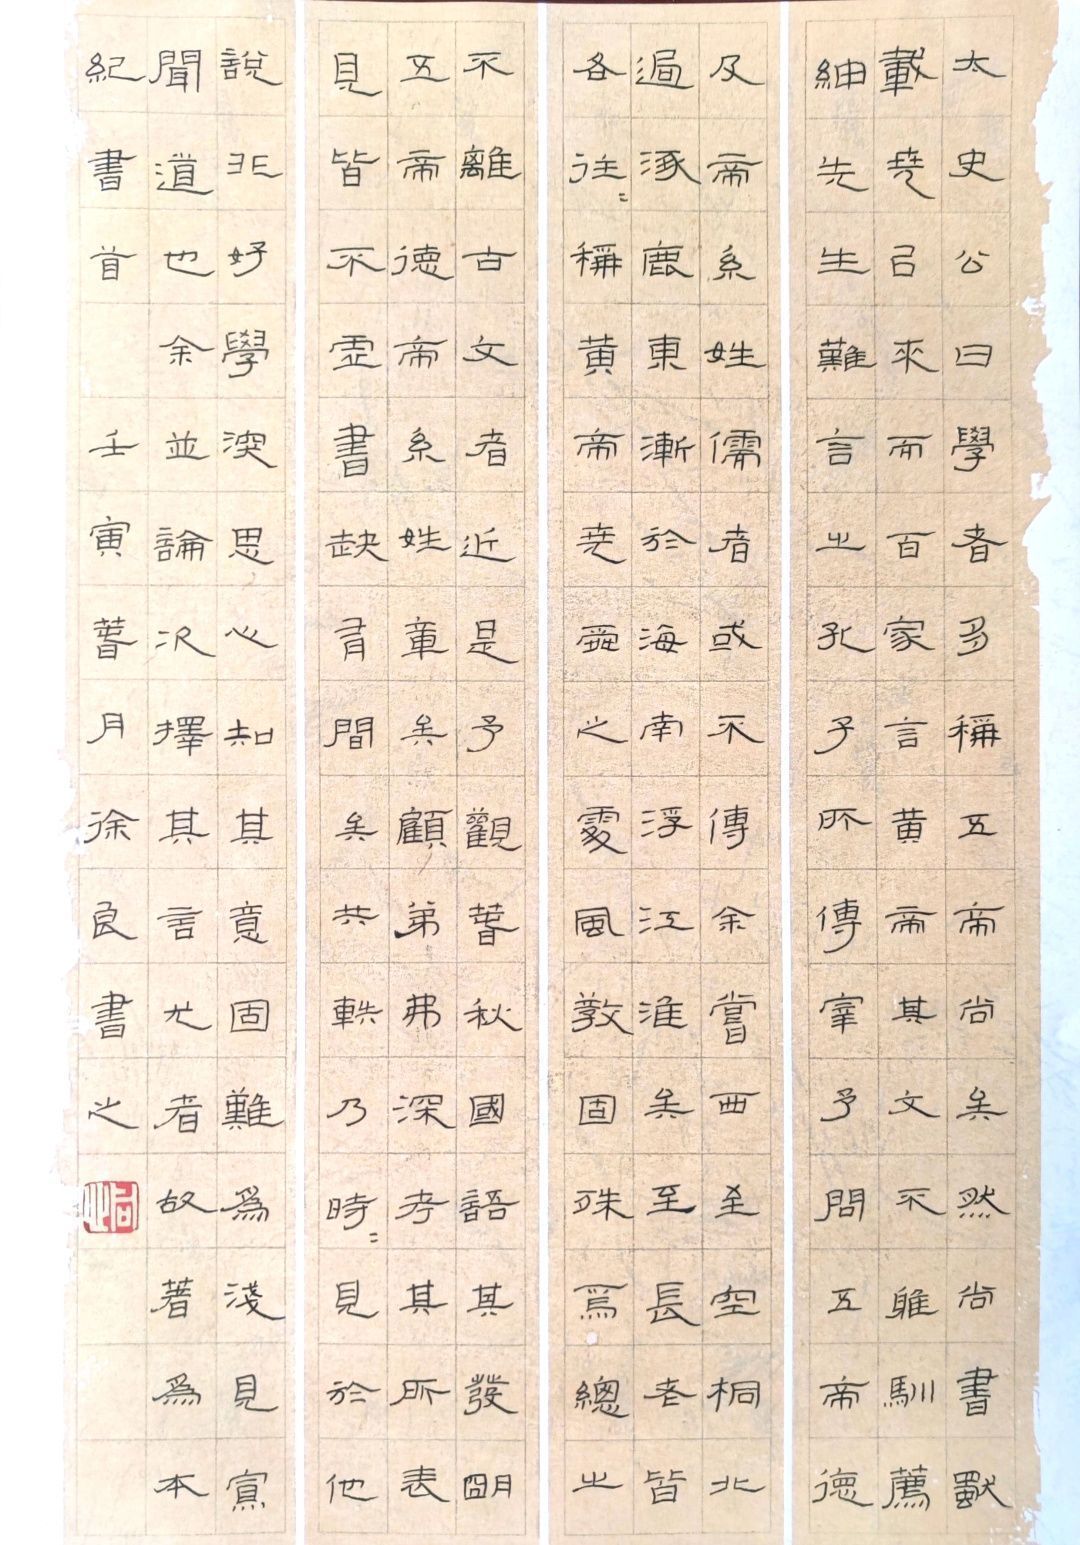 太史公曰學者多稱五帝尚矣然尚書獨
載堯㠯來而百家言黃帝其文不雅馴薦
紳先生難言之孔子所傳宰予問五帝德
及帝系姓儒者或不傳余嘗西至空桐北
過涿鹿東漸於海南浮江淮矣至長老皆
各往〻稱黃帝堯舜之處風教固殊焉總之
不離古文者近是予觀春秋國語其發明
五帝德帝系姓章矣顧弟弗深考其所表
見皆不虛書缺有間矣其軼乃時〻見於他
說非好學深思心知其意固難為淺見寡
聞道也余並論次擇其言尤者故著為本
紀書首 壬寅春月徐良書之